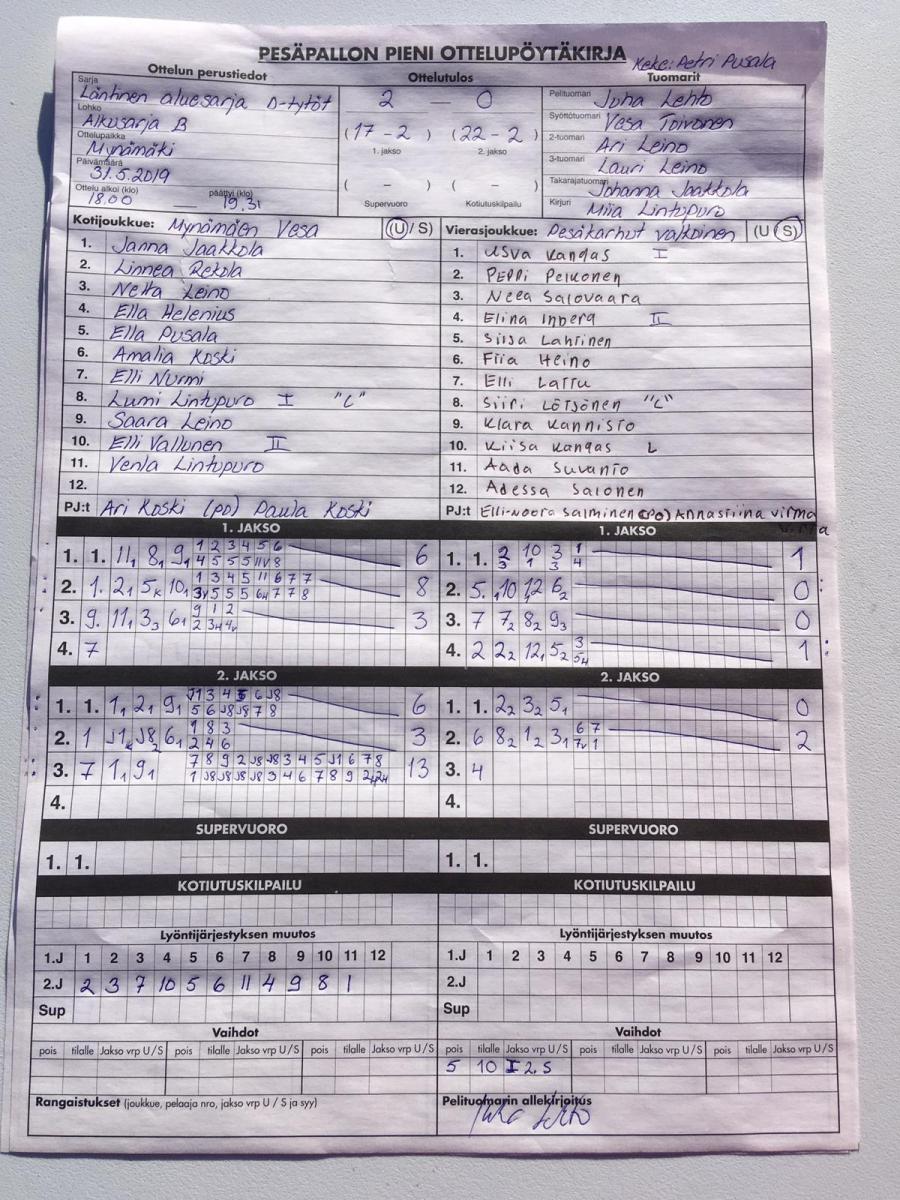 PESÄPALLON PIENI OTTELUPÖYTÄKIRJA
Keke: Petri Pusala
Ottelun perustiedot
Ottelutulos
Tuomarit
Sarja
Läntinen aluesarja D-tytöt
Lohko
Alkusarja B
Ottelupaikka
Mynämäki
Päivämäärä
31.5.2019
Ottelu alkoi (klo) päättyi (klo)
18.00 — 19.31
2 — 0
(17 - 2) (22 - 2)
1. jakso 2. jakso
( - ) ( - )
Supervuoro Kotiutuskilpailu
Pelituomari Juha Lehto
Syöttötuomari Vesa Toivonen
2-tuomari Ari Leino
3-tuomari Lauri Leino
Takarajatuomari Johanna Jaakkola
Kirjuri Miia Lintupuro
Kotijoukkue: Mynämäen Vesa (U / S)
1. Janna Jaakkola
2. Linnea Rekola
3. Netta Leino
4. Ella Helenius
5. Ella Pusala
6. Amalia Koski
7. Elli Nurmi
8. Lumi Lintupuro I "C"
9. Saara Leino
10. Elli Vallunen II
11. Venla Lintupuro
12.
PJ:t Ari Koski (PO) Paula Koski
Vierasjoukkue: Pesäkarhut valkoinen (U / S)
1. Usva Kangas I
2. Peppi Pelkonen
3. Neea Salovaara
4. Elina Inberg II
5. Silja Lahtinen
6. Fiia Heino
7. Elli Lattu
8. Siiri Lötjönen "C"
9. Klara Kannisto
10. Kiisa Kangas L
11. Aada Suvanto
12. Adessa Salonen
PJ:t Elli-Noora Salminen (PO) Annastiina Virma
1. JAKSO
1. 1. 11, 8, 9, 1 2 3 4 5 6 6
2. 1. 2, 5 10, 1 3 4 5 11 6 7 7 8
3. 9. 11, 3 6, 9 1 2 3
4. 7
1. JAKSO
1. 1. 1
2. 5. 10 12 6 0
3. 7 7 8 9 0
4. 2 2 12 5 1
2. JAKSO
1. 1. 1, 2, 9, 6
2. 1 J1 J8 6, 1 8 3 3
2 4 6
3. 7 1, 9, 7 8 9 2 J8 J8 3 4 5 J1 6 7 8 13
4.
2. JAKSO
1. 1. 2 3 5 0
2. 6 8 1 3 2
3. 4
4.
SUPERVUORO
1. 1.
SUPERVUORO
1. 1.
KOTIUTUSKILPAILU
KOTIUTUSKILPAILU
Lyöntijärjestyksen muutos
1.J 1 2 3 4 5 6 7 8 9 10 11 12
2.J 2 3 7 10 5 6 11 4 9 8 1
Sup
Lyöntijärjestyksen muutos
1.J 1 2 3 4 5 6 7 8 9 10 11 12
2.J
Sup
Vaihdot
pois tilalle Jakso vrp U/S pois tilalle Jakso vrp U/S pois tilalle Jakso vrp U/S
Vaihdot
pois tilalle Jakso vrp U/S pois tilalle Jakso vrp U/S pois tilalle Jakso vrp U/S
5 10 I 2. S
Rangaistukset (joukkue, pelaaja nro, jakso vrp U / S ja syy)
Pelituomarin allekirjoitus
Juha Lehto